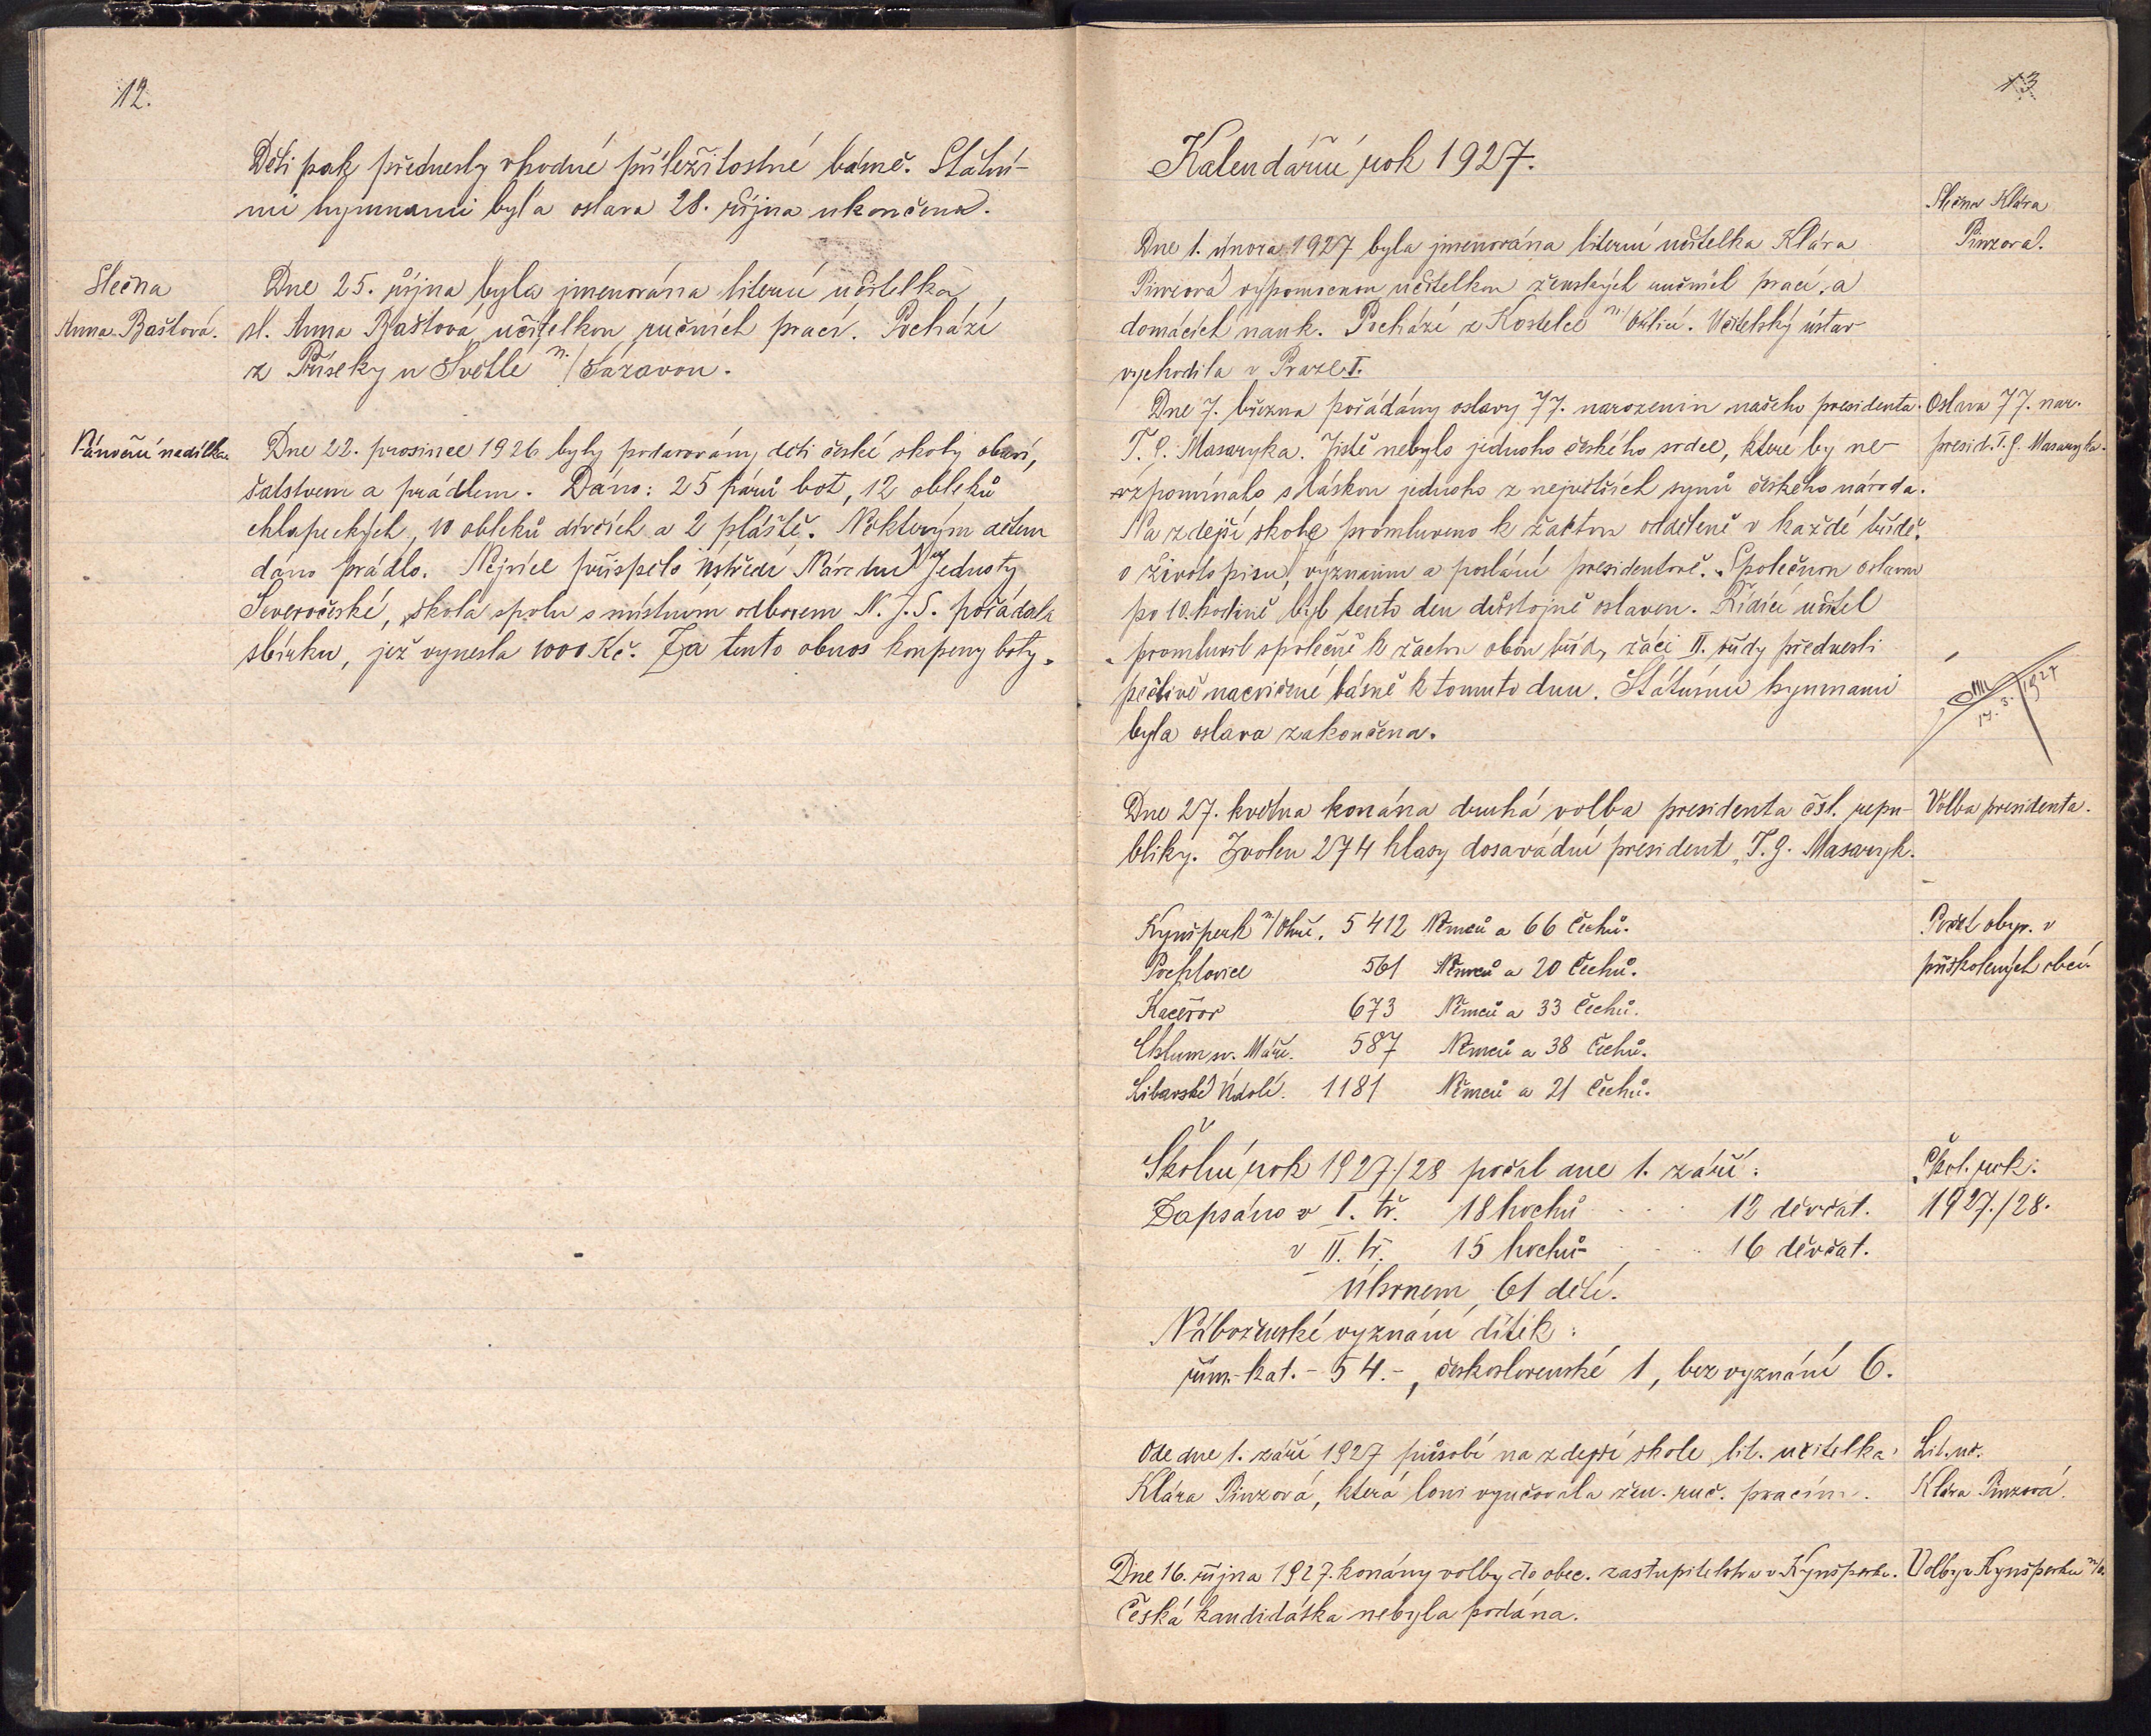 12.
Děti pak přednesly vhodné příležitostné básně. Státní-
mi hymnami byla oslava 28. října ukončena.
Slečna
Anna Baštová.
Dne 25. října byla jmenována literní učitelka
sl. Anna Baštová učitelkou ručních prací. Pochází
z Příseky u Světlé n./Sázavou.
Vánoční nadílka.
Dne 22. prosince 1926 byly podarovány děti české školy obuví,
šatstvem a prádlem. Dáno: 25 párů bot, 12 obleků
chlapeckých, 10 obleků dívčích a 2 pláště. Některým dětem
dáno prádlo. Nejvíce přispělo ústředí Národní Jednoty
Severočeské, škola spolu s místním odborem N. J. S. pořádala
sbírku, jež vynesla 1000 Kč. Za tento obnos koupeny boty.
13
Kalendářní rok 1927.
Slečna Klára
Pinzová.
Dne 1. února 1927 byla jmenována literní učitelka Klára
Pinzová výpomocnou učitelkou ženských ručních prací a
domácích nauk. Pochází z Kostelce n./Orlicí. Učitelský ústav
vychodila v Praze I.
Dne 7. března pořádány oslavy 77. narozenin našeho presidenta
T. G. Masaryka. Jistě nebylo jednoho českého srdce, které by ne-
vzpomínalo s láskou jednoho z největších synů českého národa.
Na zdejší škole promluveno k žactvu odděleně v každé třídě
o životopisu, významu a poslání presidentově. Společnou oslavou
po 10. hodině byl tento den důstojně oslaven. Řídící učitel
promluvil společně k žactvu obou tříd, žáci II. třídy přednesli
pečlivě nacvičené básně k tomuto dnu. Státními hymnami
byla oslava zakončena.
Oslava 77. nar.
presid. T. G. Masaryka.
17. 3. 1927
Dne 27. května konána druhá volba presidenta čsl. repu-
bliky. Zvolen 274 hlasy dosavádní president T. G. Masaryk.
Volba presidenta.
Kynšperk n/Ohří. 5412 Němců a 66 Čechů.
Pochlovice 561 Němců a 20 Čechů.
Kaceřov 673 Němců a 33 Čechů.
Chlum sv. Máří. 587 Němců a 38 Čechů.
Libavské Údolí. 1181 Němců a 21 Čechů.
Počet obyv. v
přiškolených obcí.
Školní rok 1927/28 počal dne 1. září:
Zapsáno v I. tř. 18 hochů . . . 12 děvčat.
v II. tř. 15 hochů . . . 16 děvčat.
Úhrnem 61 dětí.
Náboženské vyznání dítek:
řím.-kat. - 54.-, československé 1, bez vyznání 6.
Škol. rok.
1927./28.
Ode dne 1. září 1927 působí na zdejší škole lit. učitelka
Klára Pinzová, která loni vyučovala žen. ruč. pracím.
Lit. uč.
Klára Pinzová.
Dne 16. října 1927. konány volby do obec. zastupitelstva v Kynšperku.
Česká kandidátka nebyla podána.
Volby v Kynšperku n/O.